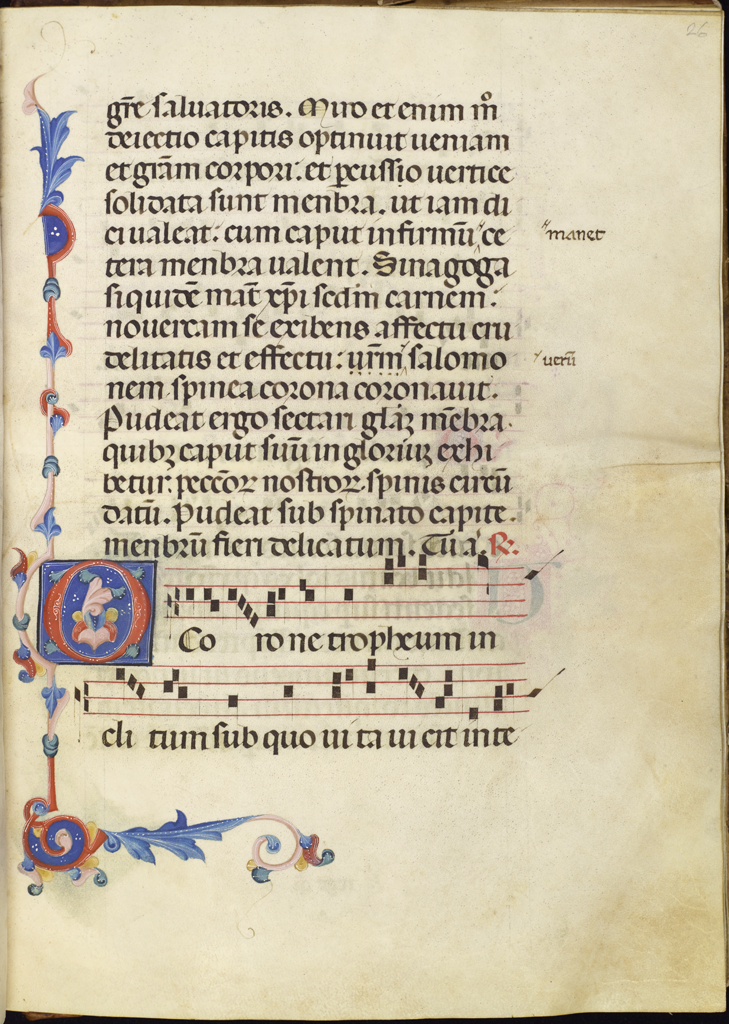 26
gr̄e saluatoris. Miro et enim mo
deiectio capitis optinuit ueniam
et gr̄am corpori: et ꝑcussio uertice
solidata sunt menbra. ut iam di
ci ualeat: cum caput infirmū ce
manet
tera menbra ualent. Sinagoga
siquidē mat̄ xp̄i scdm carnem:
nouercam se exibens affectu cru
delitatis et effectu: ur̄m salomo
uerū
nem spinea corona coronauit.
Pudeat ergo sectari gl̄aꝫ mēbra
quibꝫ caput suū ingloriuꝫ exhi
betur. peccōꝝ nostroꝝ spinis circū
datū. Pudeat sub spinato capite.
menbrū fieri delicatum. Tu a. R.
O Co ro ne tropheum in
cli tum sub quo ui ta uicit inte